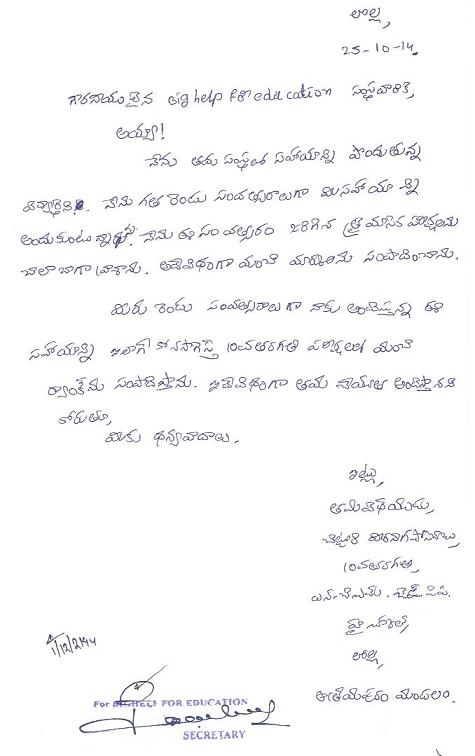 లొల్ల,
25-10-14.
గౌరవనీయులైన big help for education సంస్థవారికి,
అయ్యా!
నేను తమ సంస్థలో సహాయాన్ని పొందుతున్న
విద్యార్థిని. నేను గత రెండు సంవత్సరాలుగా మీ సహాయాన్ని
అందుకుంటున్నాను. నేను ఈ సంవత్సరం జరిగిన త్రైమాసిక పరీక్షలను
చాలా బాగా వ్రాశాను. అదేవిధంగా మంచి మార్కులను సంపాదించాను.
మీరు రెండు సంవత్సరాలుగా నాకు అందిస్తున్న ఈ
సహాయాన్ని ఇలాగే కొనసాగిస్తే 10వతరగతి పరీక్షలలో మంచి
ర్యాంకును సంపాదిస్తాను. ఇదేవిధంగా తమ చేయూత అందిస్తారని
కోరుతూ,
మీకు ధన్యవాదాలు.
ఇట్లు,
తమవిధేయుడు,
వీరనాగ
10వతరగతి,
హైస్కూల్,
లొల్ల,
ఆత్రేయపురం మండలం.
1/12/2014
For BIGHELP FOR EDUCATION
SECRETARY